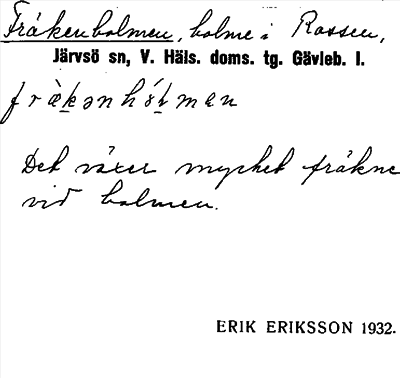 Fräkenholmen, holme i Rossen,
Järvsö sn, V. Häls. doms. tg. Gävleb. l.
fræ̀kənhɷ́ɫmen
Det växer mycket fräkne
vid holmen.
ERIK ERIKSSON 1932.